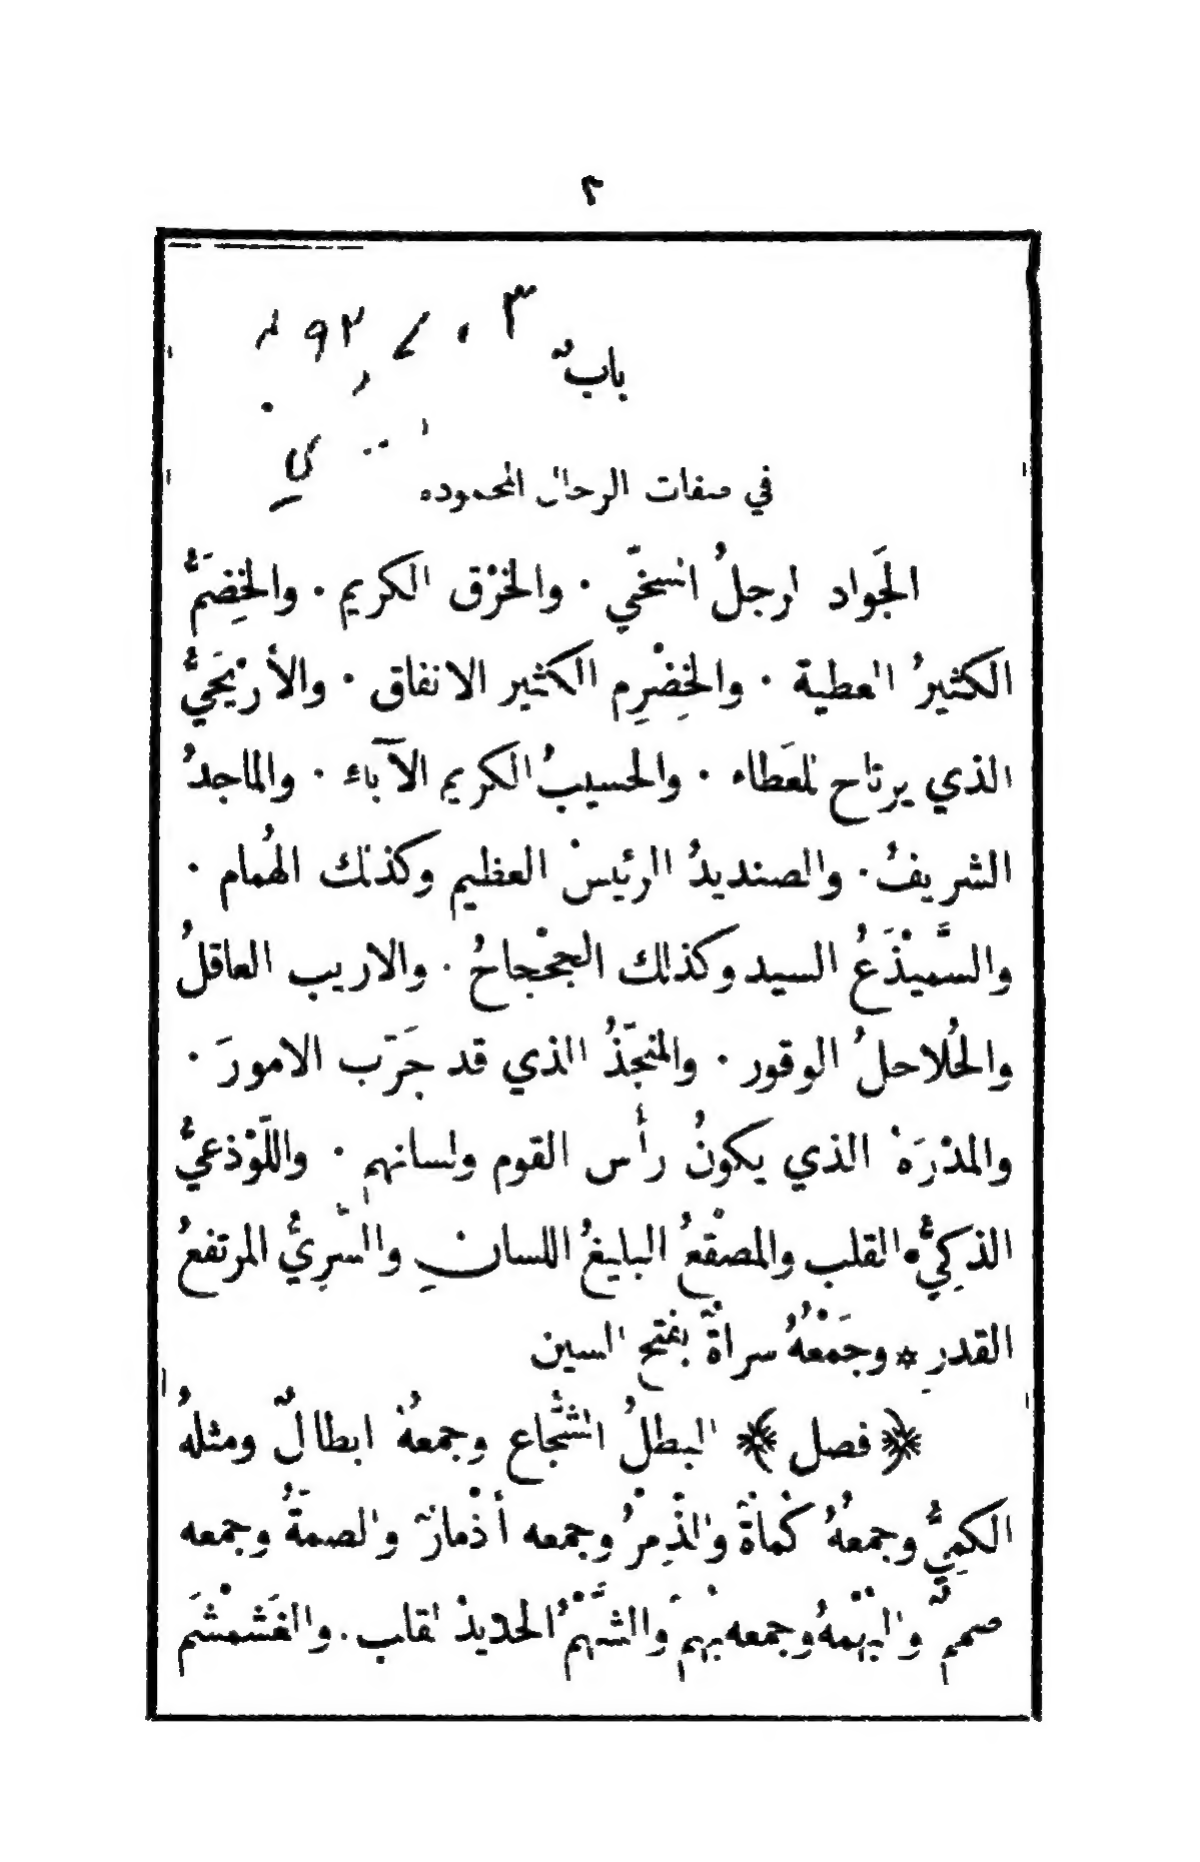 ٢
بابٌ
في صفات الرجال المحموده
الجَواد الرجلُ السخيّ · والخرْق الكريم · والخِضَمُّ
الكثيرُ العطية · والخِضْرِم الكثير الانفاق · والأرْيَحيُّ
الذي يرتاح للعَطاء · والحسيبُ الكريم الآباء · والماجدُ
الشريفُ · والصنديدُ الرئيسُ العظيم وكذلك الهُمام ·
والسَّمَيْذَعُ السيد وكذلك الجحْجاحُ · والاريب العاقلُ
والحُلاحلُ الوقور · والمنجّذُ الذي قد جَرّب الامورَ ·
والمدْرَه الذي يكونُ رأس القوم ولسانهم · واللّوْذعيُّ
الذكِيُّ القلب والمصْقعُ البليغُ اللسانِ والسّرِيُّ المرتفعُ
القدرِ * وجَمْعُهُ سراةٌ بفتح السين
﴿ فصل ﴾ البطلُ الشُّجاع وجمعُهُ ابطالٌ ومثلهُ
الكمِيُّ وجمعُهُ كُماةٌ والذّمِرُ وجمعه أذْمارٌ والصمّةُ وجمعه
صممٌ والبُهْمهُ وجمعه بُهَم والشَّهْمُ الحديدُ القلب · والغَشَمْشَم